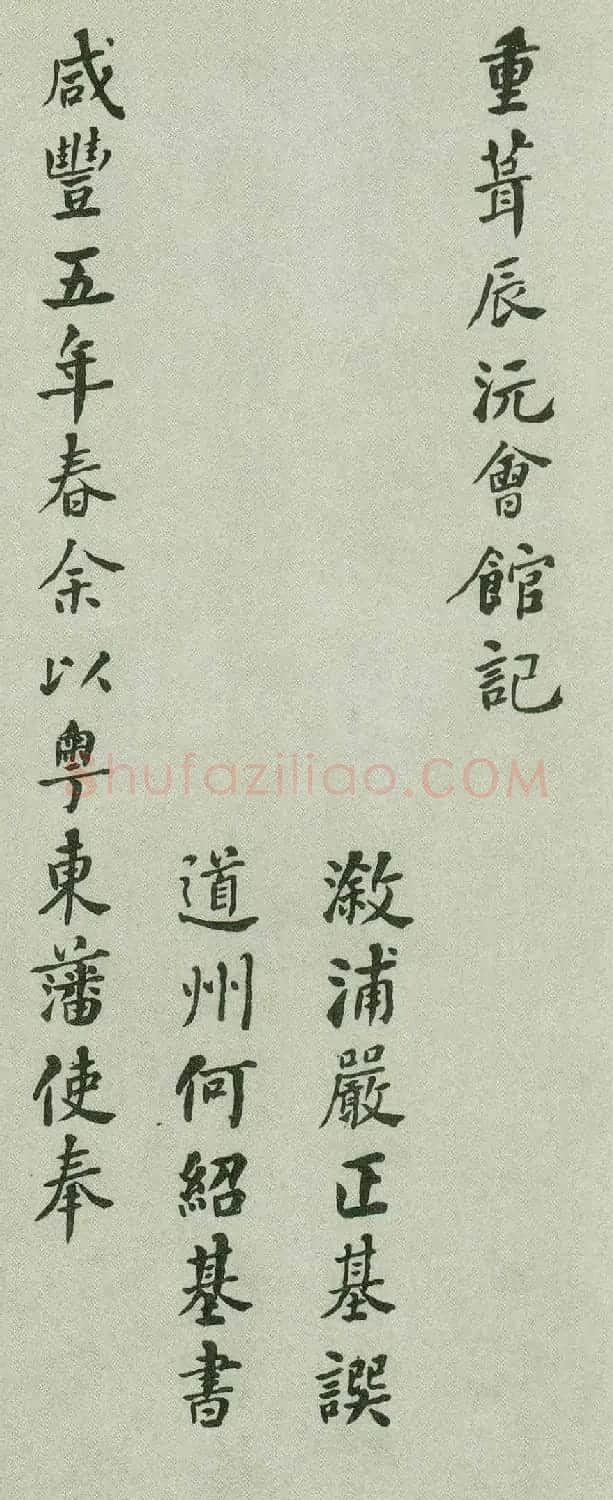 重葺辰沅會館記
漵浦嚴正基譔
道州何紹基書
咸豐五年春余以粵東藩使奉
Shufaziliao.COM